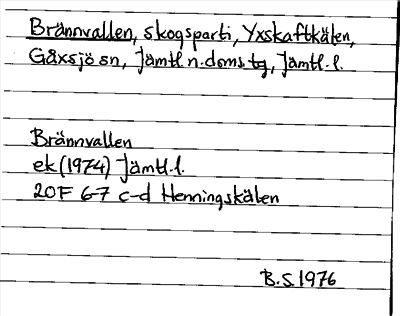 Brännvallen, skogsparti, Yxskaftkälen,
Gåxsjö sn, Jämtl. n. doms. tg, Jämtl. l.
Brännvallen
ek (1974) Jämtl. l.
20F 6-7 c-d Henningskälen
B.S. 1976